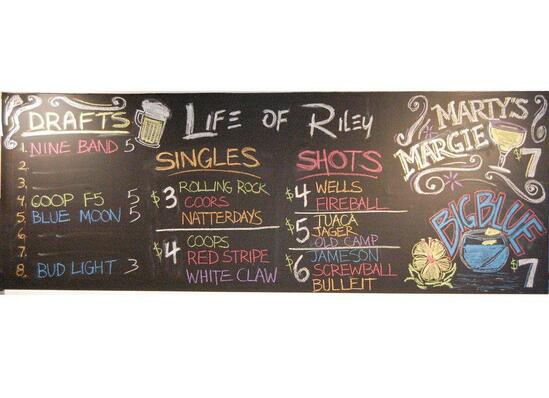 DRAFTS
1. NINE BAND 5
2.
3.
4. COOP F5 5
5. BLUE MOON 5
6.
7.
8. BUD LIGHT 3
LIFE OF RILEY
SINGLES
$3 ROLLING ROCK
COORS
NATTERDAYS
$4 COOPS
RED STRIPE
WHITE CLAW
SHOTS
$4 WELLS
FIREBALL
$5 TUACA
JAGER
OLD CAMP
$6 JAMESON
SCREWBALL
BULLEIT
MARTY'S
MARGIE
$7
BIG BLUE
$7